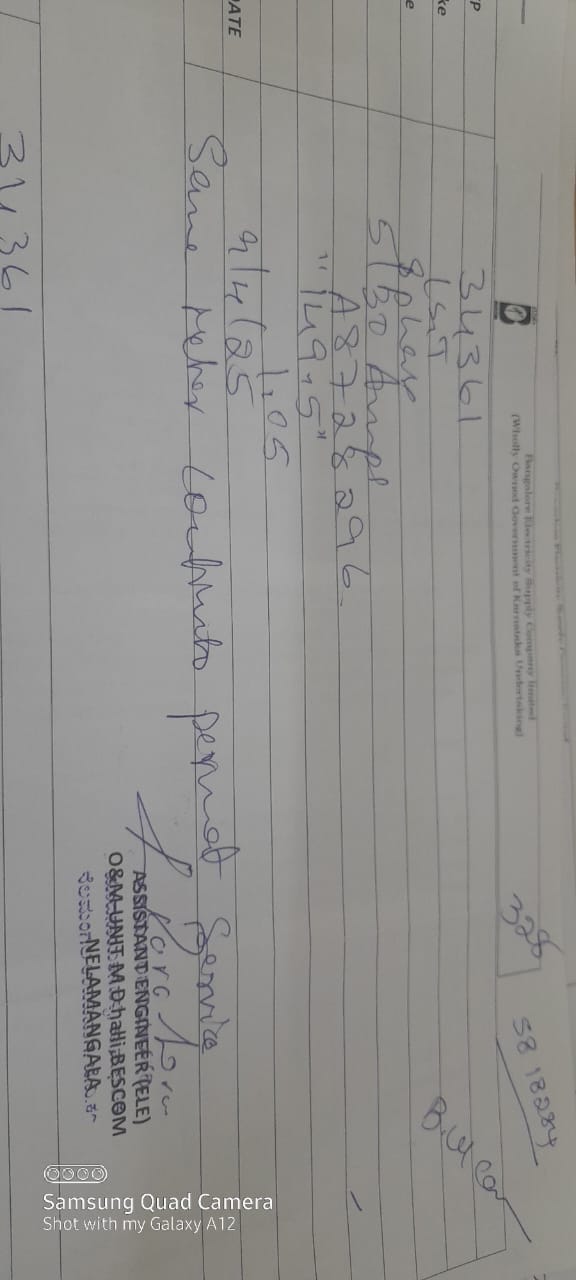 Bangalore Electricity Supply Company limited
(Wholly Owned Government of Karnataka Undertaking)
328
5818284
34361
L&T
3 phase
5/30 Amps
A8728296
"149.5"
1.05
DATE
4/4/25
Same Meter Continuto permnet Service
ASSISTANT ENGINEER (ELE)
O&M-UNIT. M.D.halli, BESCOM
NELAMANGALA
34361
Samsung Quad Camera
Shot with my Galaxy A12